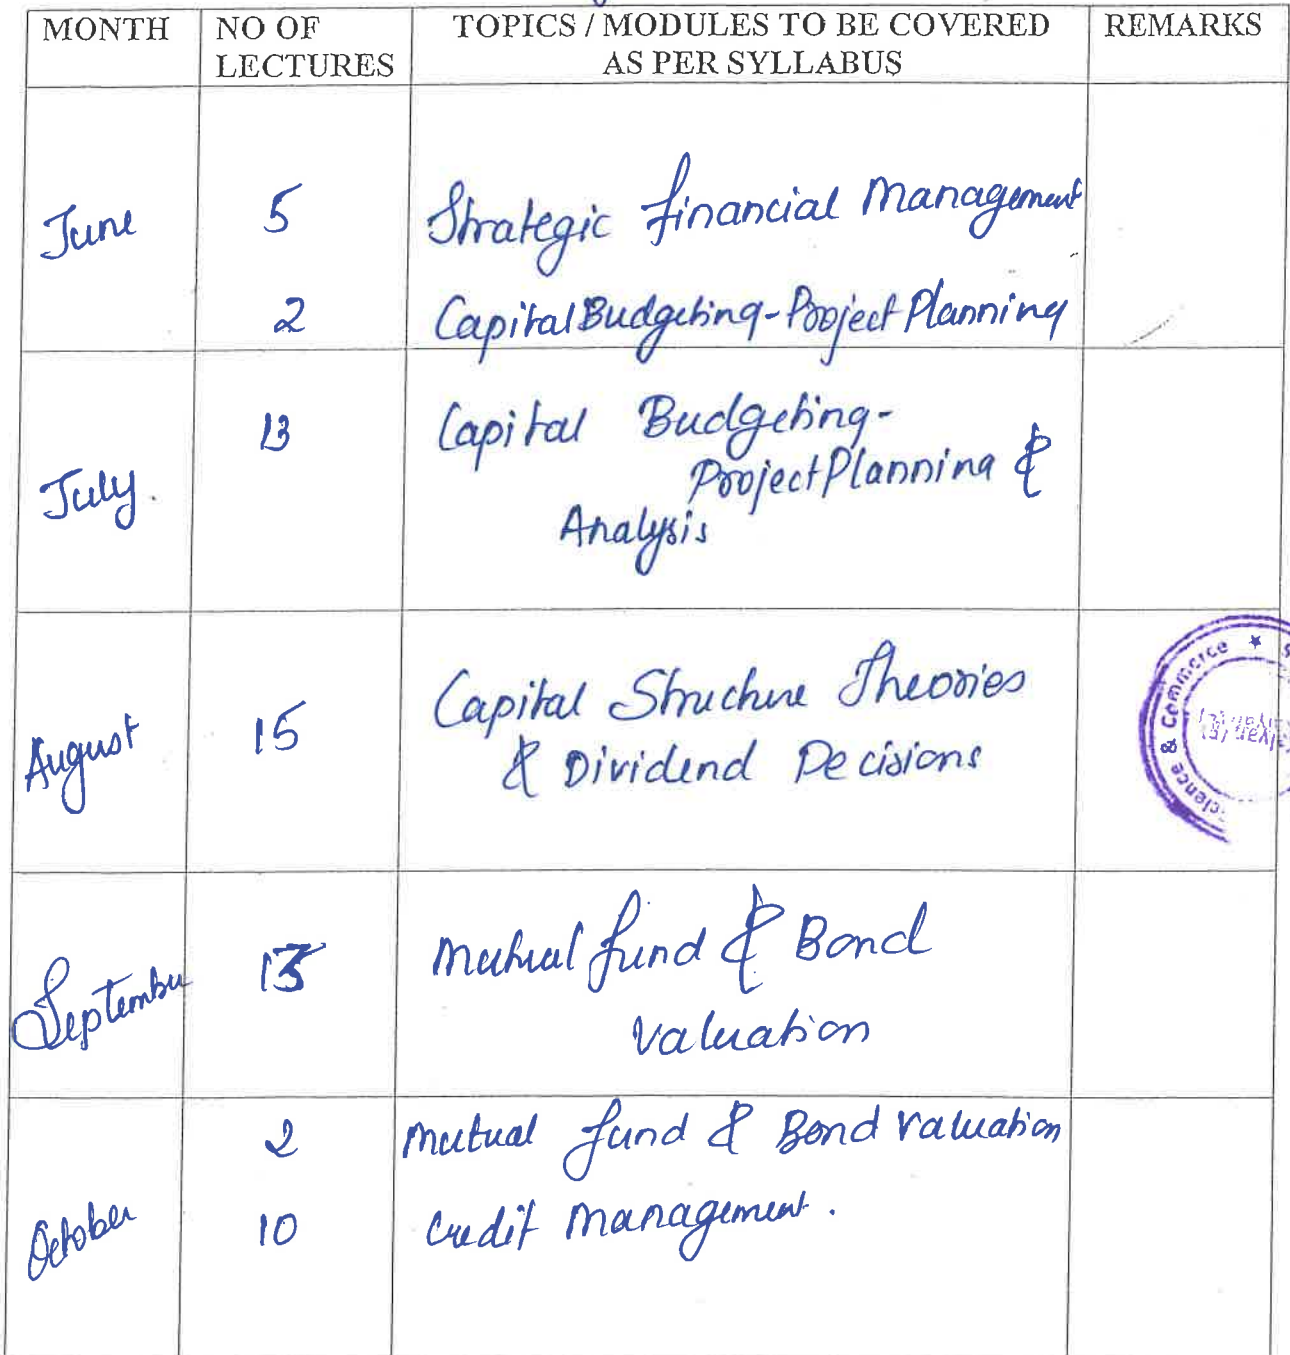 MONTH
NO OF
LECTURES
TOPICS / MODULES TO BE COVERED
AS PER SYLLABUS
REMARKS
June
5
Strategic Financial Management
2
Capital Budgeting - Project Planning
July.
13
Capital Budgeting -
Project Planning &
Analysis
August
15
Capital Structure Theories
& Dividend Decisions
September
13
Mutual fund & Bond
Valuation
October
2
Mutual fund & Bond Valuation
10
Credit Management.
Science & Commerce ★